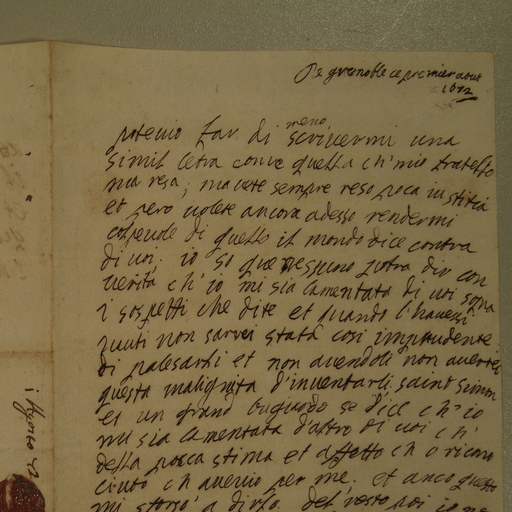 De grenoble ce premier aout
1672
potevio far di meno scrivermi una
simil letra come quella ch'mio fratello
ma resa, mavete sempre reso poca iustitia
et pero volete ancora adesso rendermi
colpevole di quello il mondo dice contra
di voi, io so que nessuno potra dir con
verita ch'io mi sia lamentata di voi sopra
i sospetti che dite et quando l'havessi
avuti non sarrei stata cosi imprudente
di palesarli et non avendoli non averei
questa malignita d'inventarli saint simon
et un grand bugiardo se dice ch'io
mi sia lamentata d'altro di voi ch'
della pocca stima et affetto ch o ricono
ciuto ch avevio per me. et anco questo
mi storso a dirlo. del resto poi io